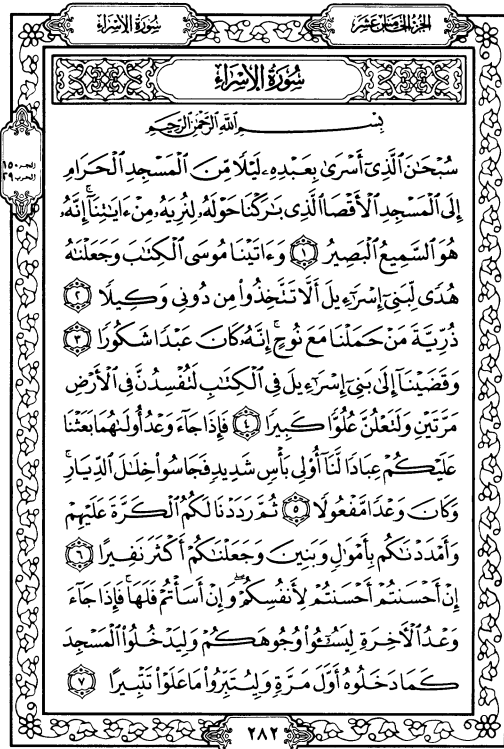 سُورَةُ الإِسْرَاءِ
الجزء الخامس عشر
سُورَةُ الإِسْرَاءِ
الجزء ١٥
الحزب ٢٩
بِسْمِ اللَّهِ الرَّحْمَٰنِ الرَّحِيمِ
سُبْحَٰنَ الَّذِىٓ أَسْرَىٰ بِعَبْدِهِۦ لَيْلًا مِّنَ الْمَسْجِدِ الْحَرَامِ
إِلَى الْمَسْجِدِ الْأَقْصَا الَّذِى بَٰرَكْنَا حَوْلَهُۥ لِنُرِيَهُۥ مِنْ ءَايَٰتِنَآ ۚ إِنَّهُۥ
هُوَ السَّمِيعُ الْبَصِيرُ ١ وَءَاتَيْنَا مُوسَى الْكِتَٰبَ وَجَعَلْنَٰهُ
هُدًى لِّبَنِىٓ إِسْرَٰٓءِيلَ أَلَّا تَتَّخِذُوا۟ مِن دُونِى وَكِيلًا ٢
ذُرِّيَّةَ مَنْ حَمَلْنَا مَعَ نُوحٍ ۚ إِنَّهُۥ كَانَ عَبْدًا شَكُورًا ٣
وَقَضَيْنَآ إِلَىٰ بَنِىٓ إِسْرَٰٓءِيلَ فِى الْكِتَٰبِ لَتُفْسِدُنَّ فِى الْأَرْضِ
مَرَّتَيْنِ وَلَتَعْلُنَّ عُلُوًّا كَبِيرًا ٤ فَإِذَا جَآءَ وَعْدُ أُولَىٰهُمَا بَعَثْنَا
عَلَيْكُمْ عِبَادًا لَّنَآ أُو۟لِى بَأْسٍ شَدِيدٍ فَجَاسُوا۟ خِلَٰلَ الدِّيَارِ ۚ
وَكَانَ وَعْدًا مَّفْعُولًا ٥ ثُمَّ رَدَدْنَا لَكُمُ الْكَرَّةَ عَلَيْهِمْ
وَأَمْدَدْنَٰكُم بِأَمْوَٰلٍ وَبَنِينَ وَجَعَلْنَٰكُمْ أَكْثَرَ نَفِيرًا ٦
إِنْ أَحْسَنتُمْ أَحْسَنتُمْ لِأَنفُسِكُمْ ۖ وَإِنْ أَسَأْتُمْ فَلَهَا ۚ فَإِذَا جَآءَ
وَعْدُ الْءَاخِرَةِ لِيَسُۥٓـُٔوا۟ وُجُوهَكُمْ وَلِيَدْخُلُوا۟ الْمَسْجِدَ
كَمَا دَخَلُوهُ أَوَّلَ مَرَّةٍ وَلِيُتَبِّرُوا۟ مَا عَلَوْا۟ تَتْبِيرًا ٧
٢٨٢